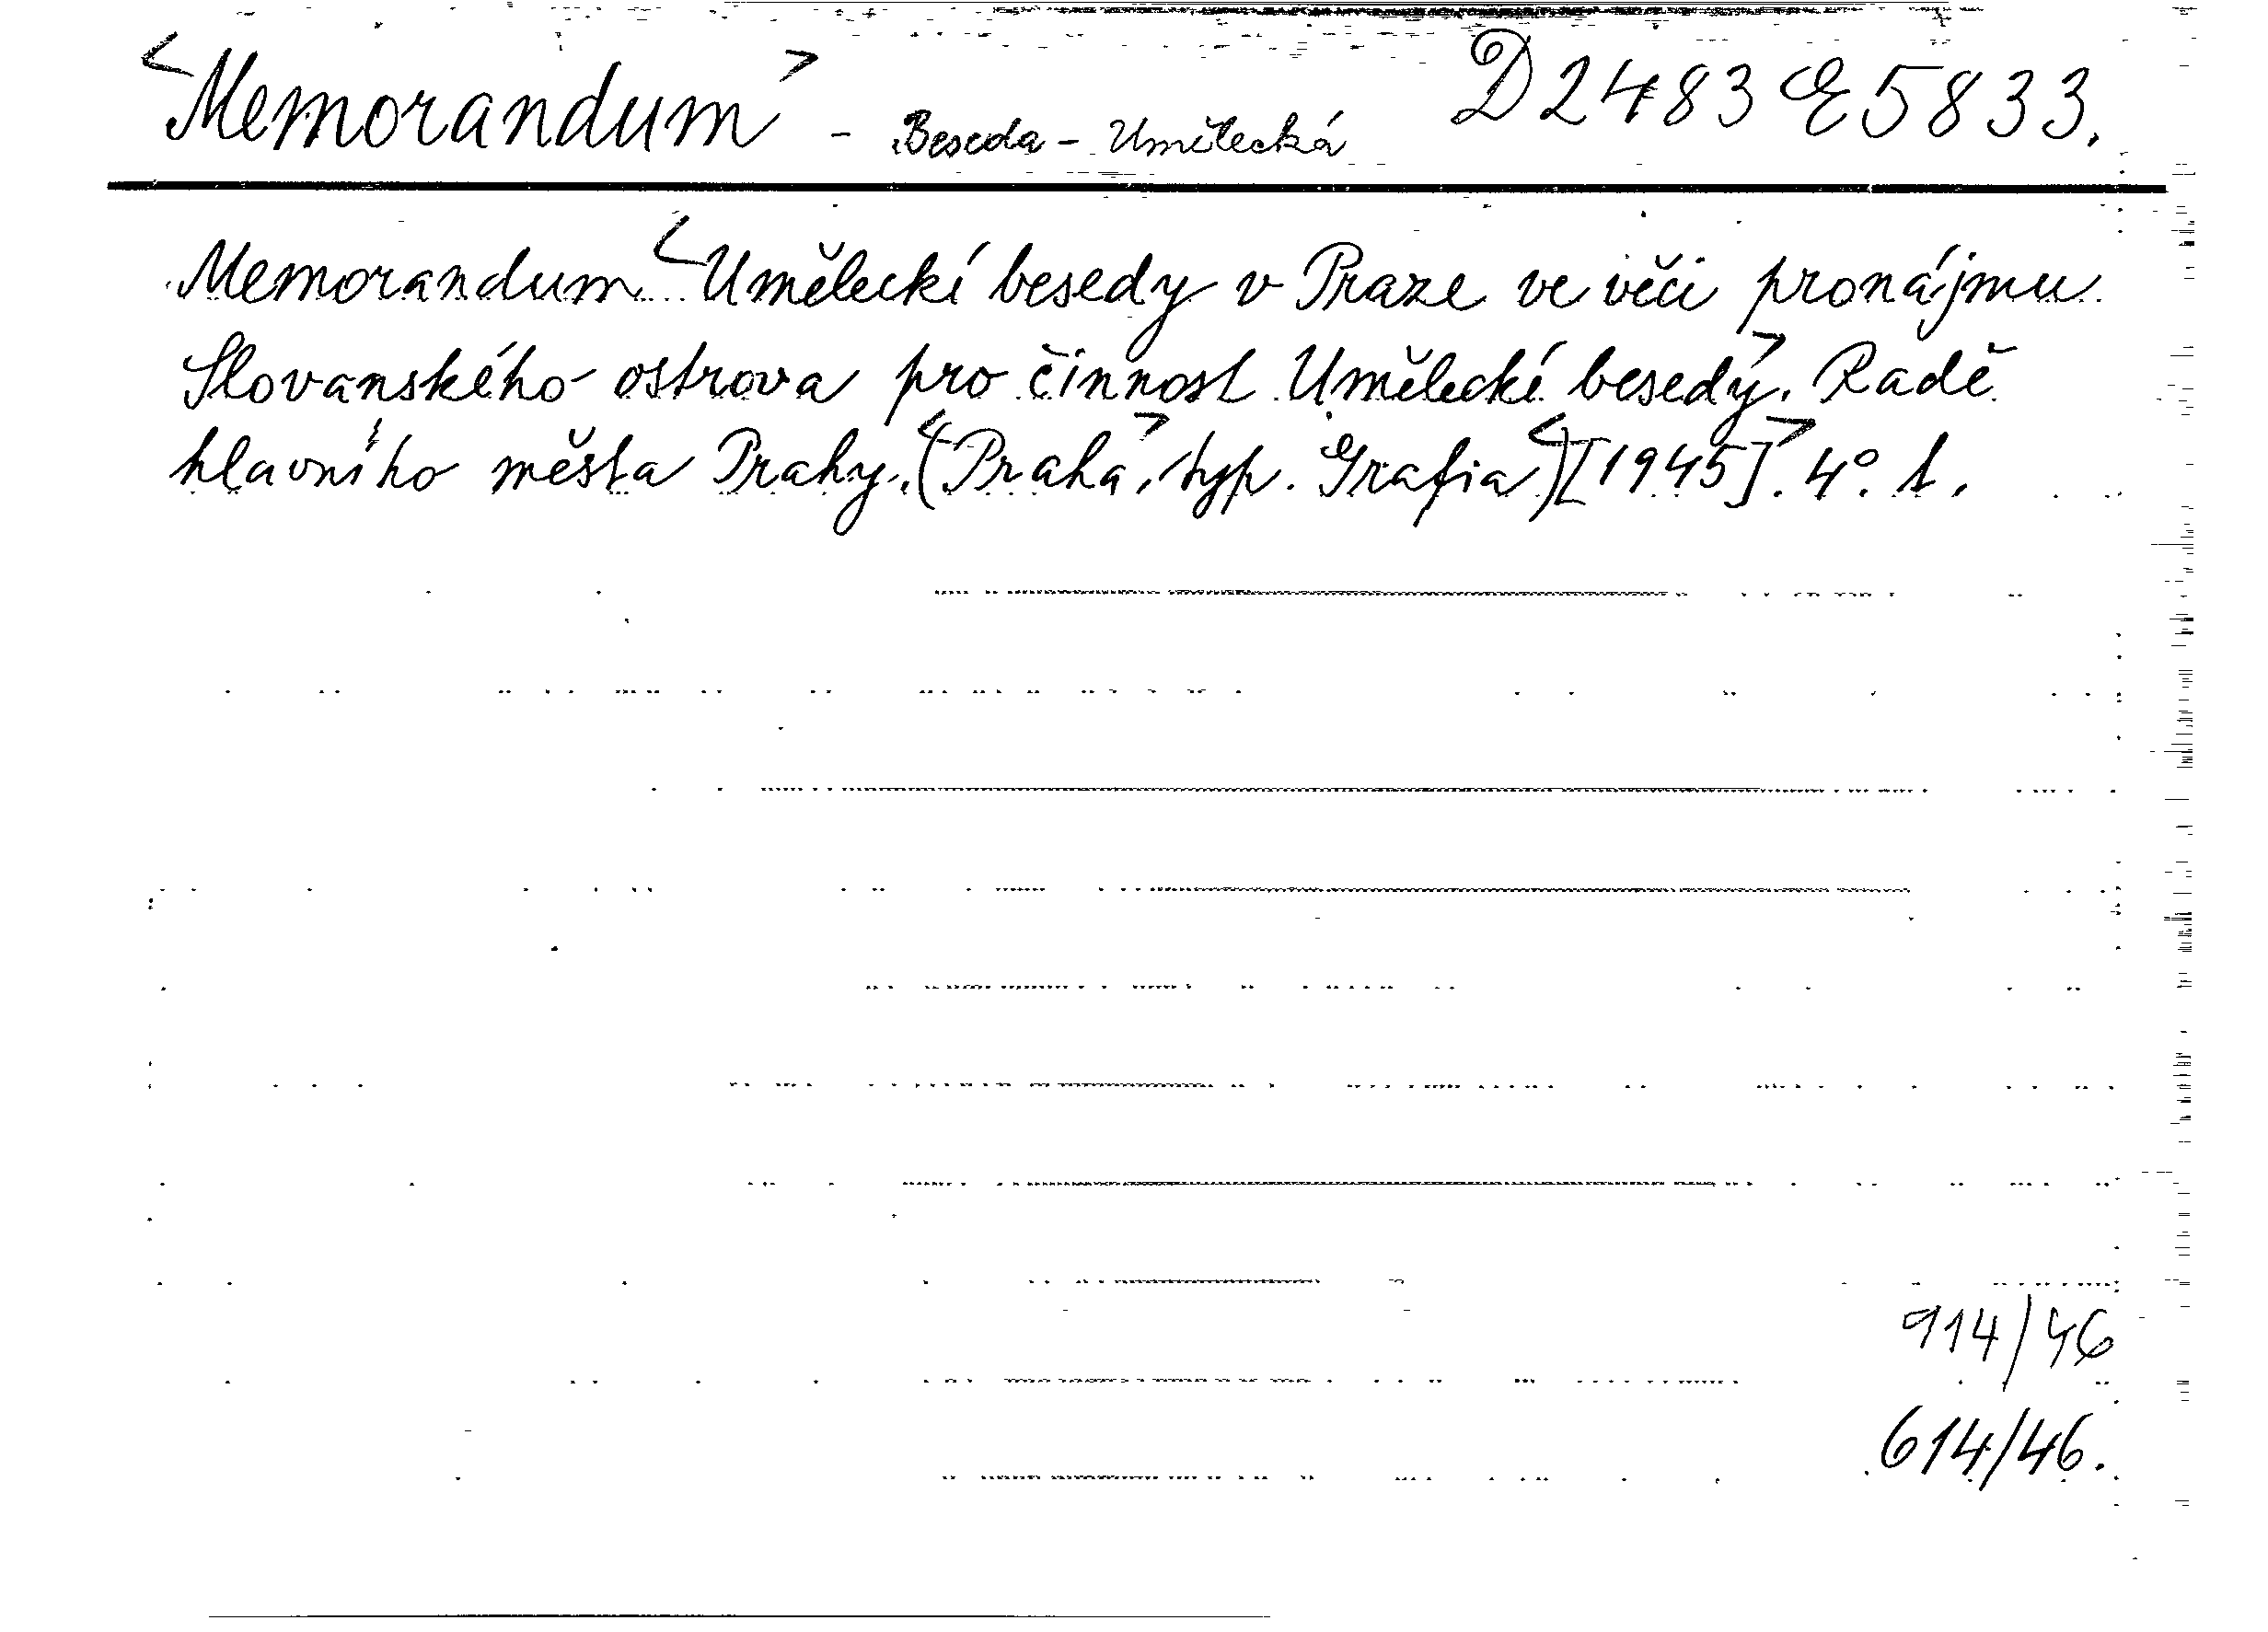 <Memorandum> - Beseda - Umělecká D 2483 E 5833.
Memorandum <Umělecké besedy v Praze ve věci pronájmu
Slovanského ostrova pro činnost Umělecké besedy>. Radě
hlavního města Prahy. <(Praha>, typ. Grafia<)[1945]>. 4°. 1.
914/46
614/46.